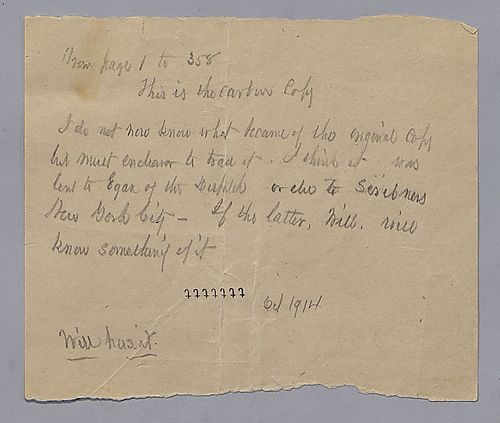 From page 1 to 358
This is the carbon Copy
I do not now know what became of the original Copy
but must endeavor to trace it. I think it was
sent to Egan of the Dispatch or else to Scribners
New York City - If the latter, Will, will
know something of it
ttttttt
Oct 1914.
Will has it.